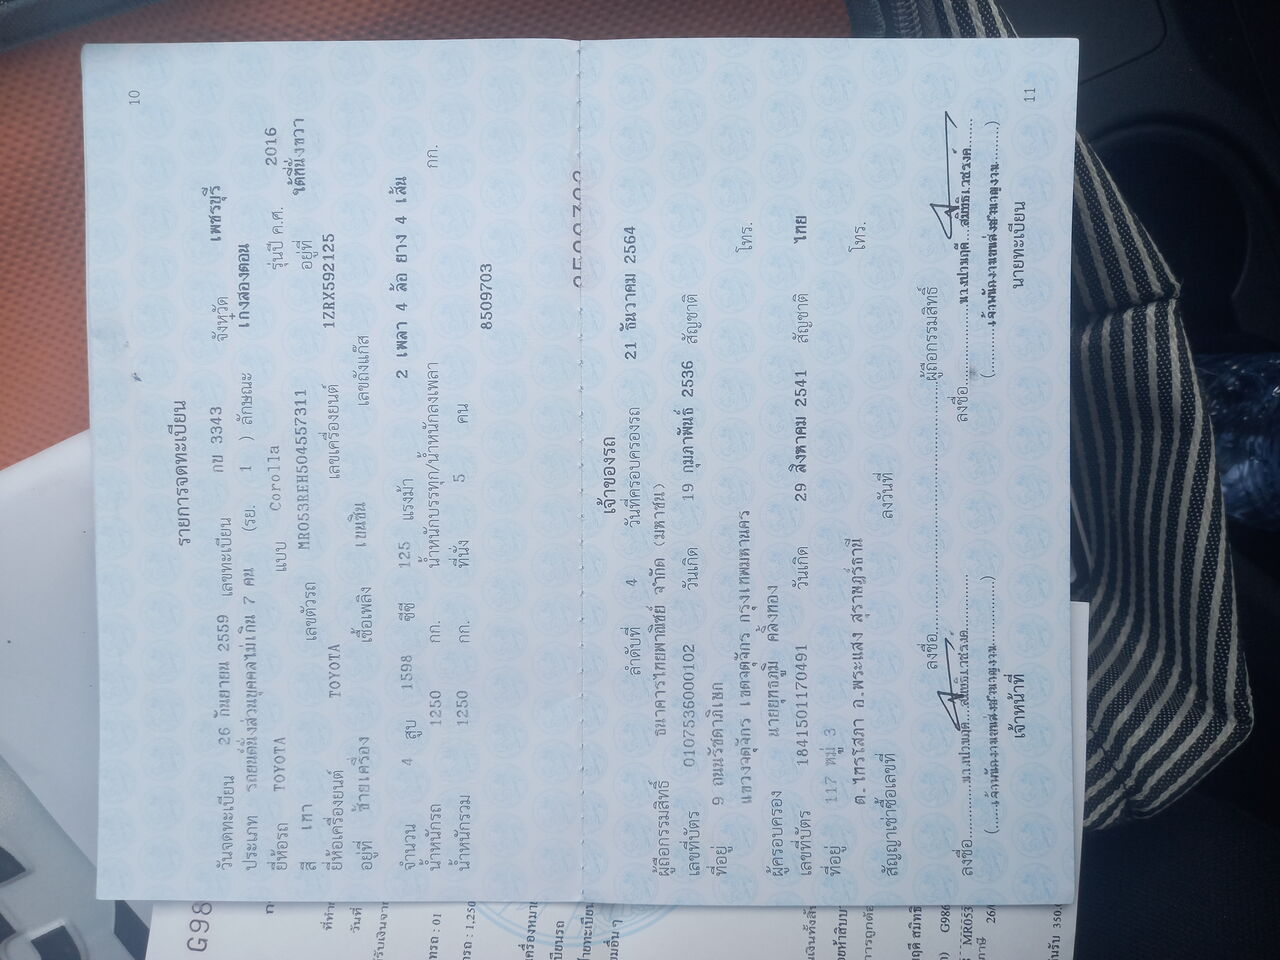 10
รายการจดทะเบียน
วันจดทะเบียน 26 กันยายน 2559 เลขทะเบียน กข 3343 จังหวัด เพชรบุรี
ประเภท รถยนต์นั่งส่วนบุคคลไม่เกิน 7 คน (รย. 1 ) ลักษณะ เก๋งสองตอน
ยี่ห้อรถ TOYOTA แบบ Corolla รุ่นปี ค.ศ. 2016
สี เทา เลขตัวรถ MR053REH504557311 อยู่ที่ ใต้ที่นั่งขวา
ยี่ห้อเครื่องยนต์ TOYOTA เลขเครื่องยนต์ 1ZRX592125
อยู่ที่ ซ้ายเครื่อง เชื้อเพลิง เบนซิน เลขถังแก๊ส
จำนวน 4 สูบ 1598 ซีซี 125 แรงม้า 2 เพลา 4 ล้อ ยาง 4 เส้น
น้ำหนักรถ 1250 กก. น้ำหนักบรรทุก/น้ำหนักลงเพลา กก.
น้ำหนักรวม 1250 กก. ที่นั่ง 5 คน
8509703
เจ้าของรถ
ลำดับที่ 4 วันที่ครอบครองรถ 21 ธันวาคม 2564
ผู้ถือกรรมสิทธิ์ ธนาคารไทยพาณิชย์ จำกัด (มหาชน)
เลขที่บัตร 0107536000102 วันเกิด 19 กุมภาพันธ์ 2536 สัญชาติ
ที่อยู่ 9 ถนนรัชดาภิเษก โทร.
แขวงจตุจักร เขตจตุจักร กรุงเทพมหานคร
ผู้ครอบครอง นายยุทธภูมิ คลิ้งทอง
เลขที่บัตร 1841501170491 วันเกิด 29 สิงหาคม 2541 สัญชาติ ไทย
ที่อยู่ 117 หมู่ 3 โทร.
ต.ไทรโสภา อ.พระแสง สุราษฎร์ธานี
สัญญาเช่าซื้อเลขที่ ลงวันที่
ลงชื่อ ผู้ถือกรรมสิทธิ์
ลงชื่อ ลงชื่อ
เจ้าหน้าที่ นายทะเบียน
11
G98